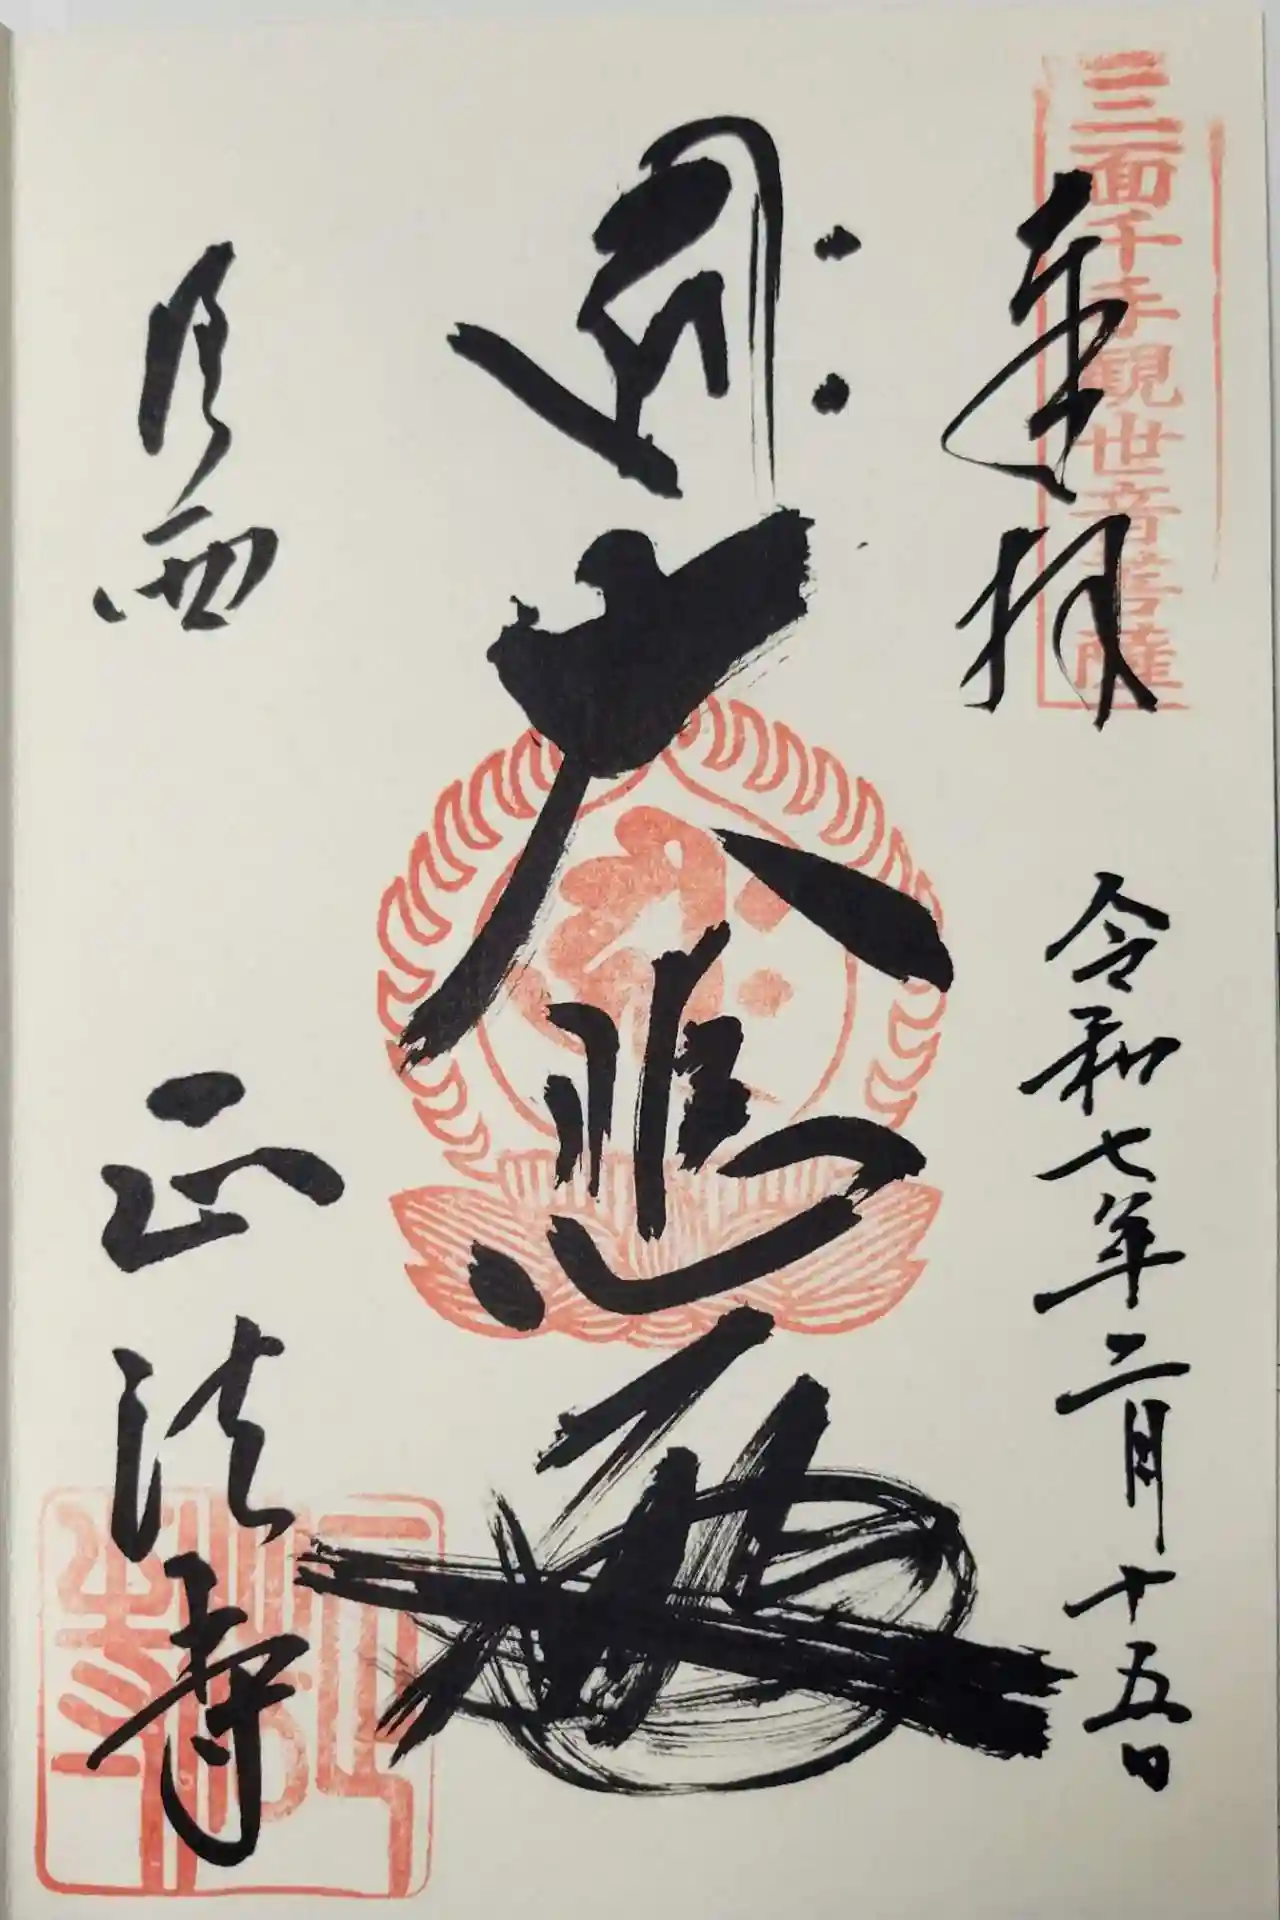 三面千手觀世音菩薩
奉拝
令和七年二月十五日
大悲殿
洛西
正法寺